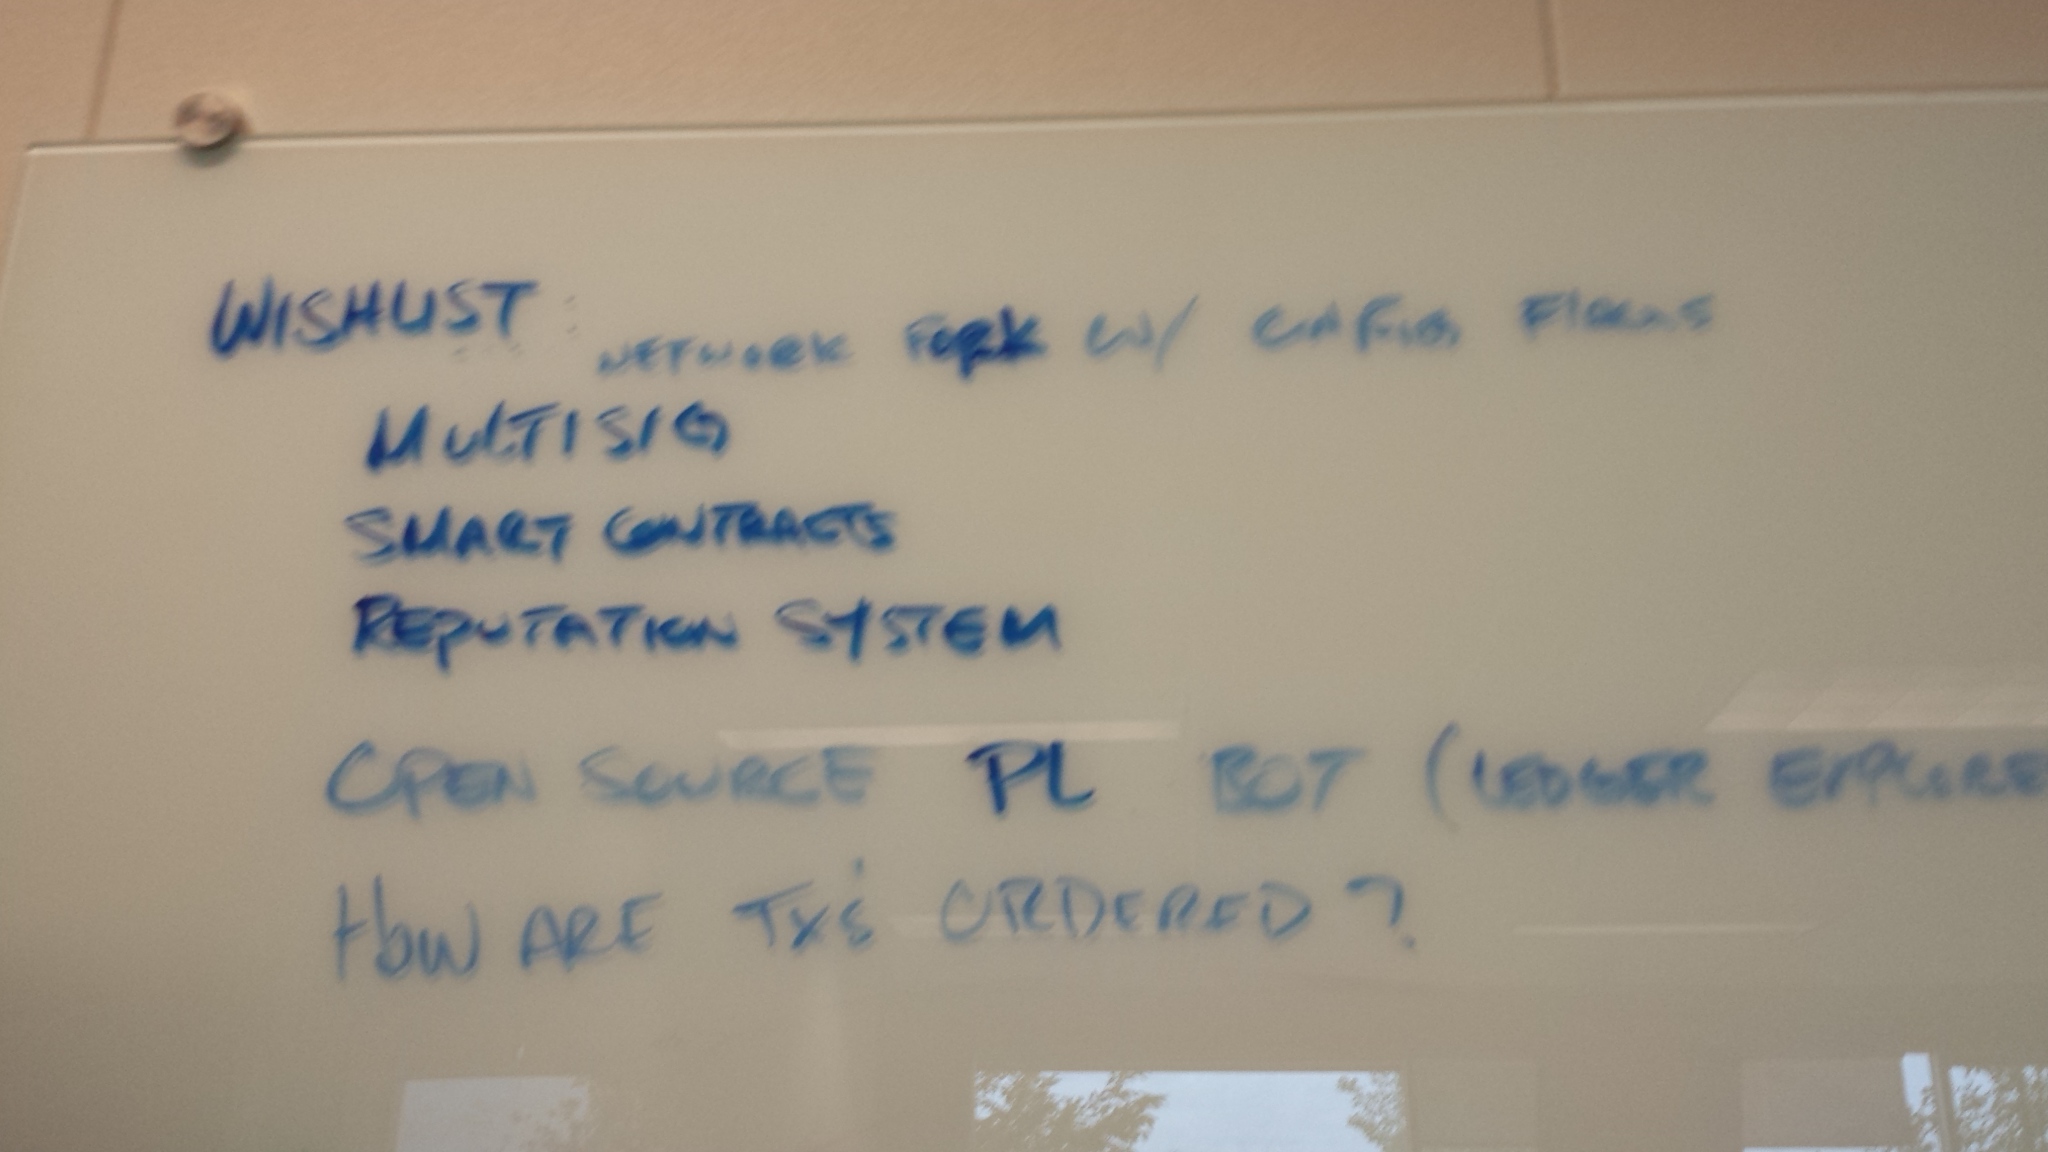 WISHLIST:
NETWORK FORK W/ CONFIG
MULTISIG
SMART CONTRACTS
REPUTATION SYSTEM
OPEN SOURCE PL BOT (LEDGER EXPLORE
HOW ARE TX'S ORDERED?